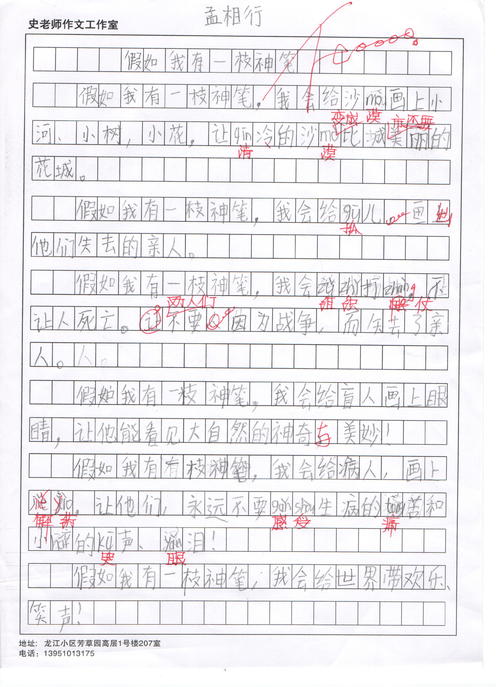 史老师作文工作室
孟相行
假如我有一枝神笔
假如我有一枝神笔。我会给沙mo画上小
变成 漠
河、小树,小花。让qin冷的沙mo 美丽的
清 漠
花城。
假如我有一枝神笔,我会给gū儿 画
孤
他们失去的亲人。
假如我有一枝神笔,我会 打 不
人们 仗
让人死亡。不要因为战争,而失去了亲
人。人。
假如我有一枝神笔,我会给盲人画上眼
睛,让他能看见大自然的神奇与美妙!
假如我有有枝神笔,我会给病人,画上
让他们,永远不要 生病的 苦和
解药 感受 痛
的kū声、 泪!
哭 眼
假如我有一枝神笔,我会给世界带欢乐、
笑声!
地址:龙江小区芳草园高层1号楼207室
电话:13951013175